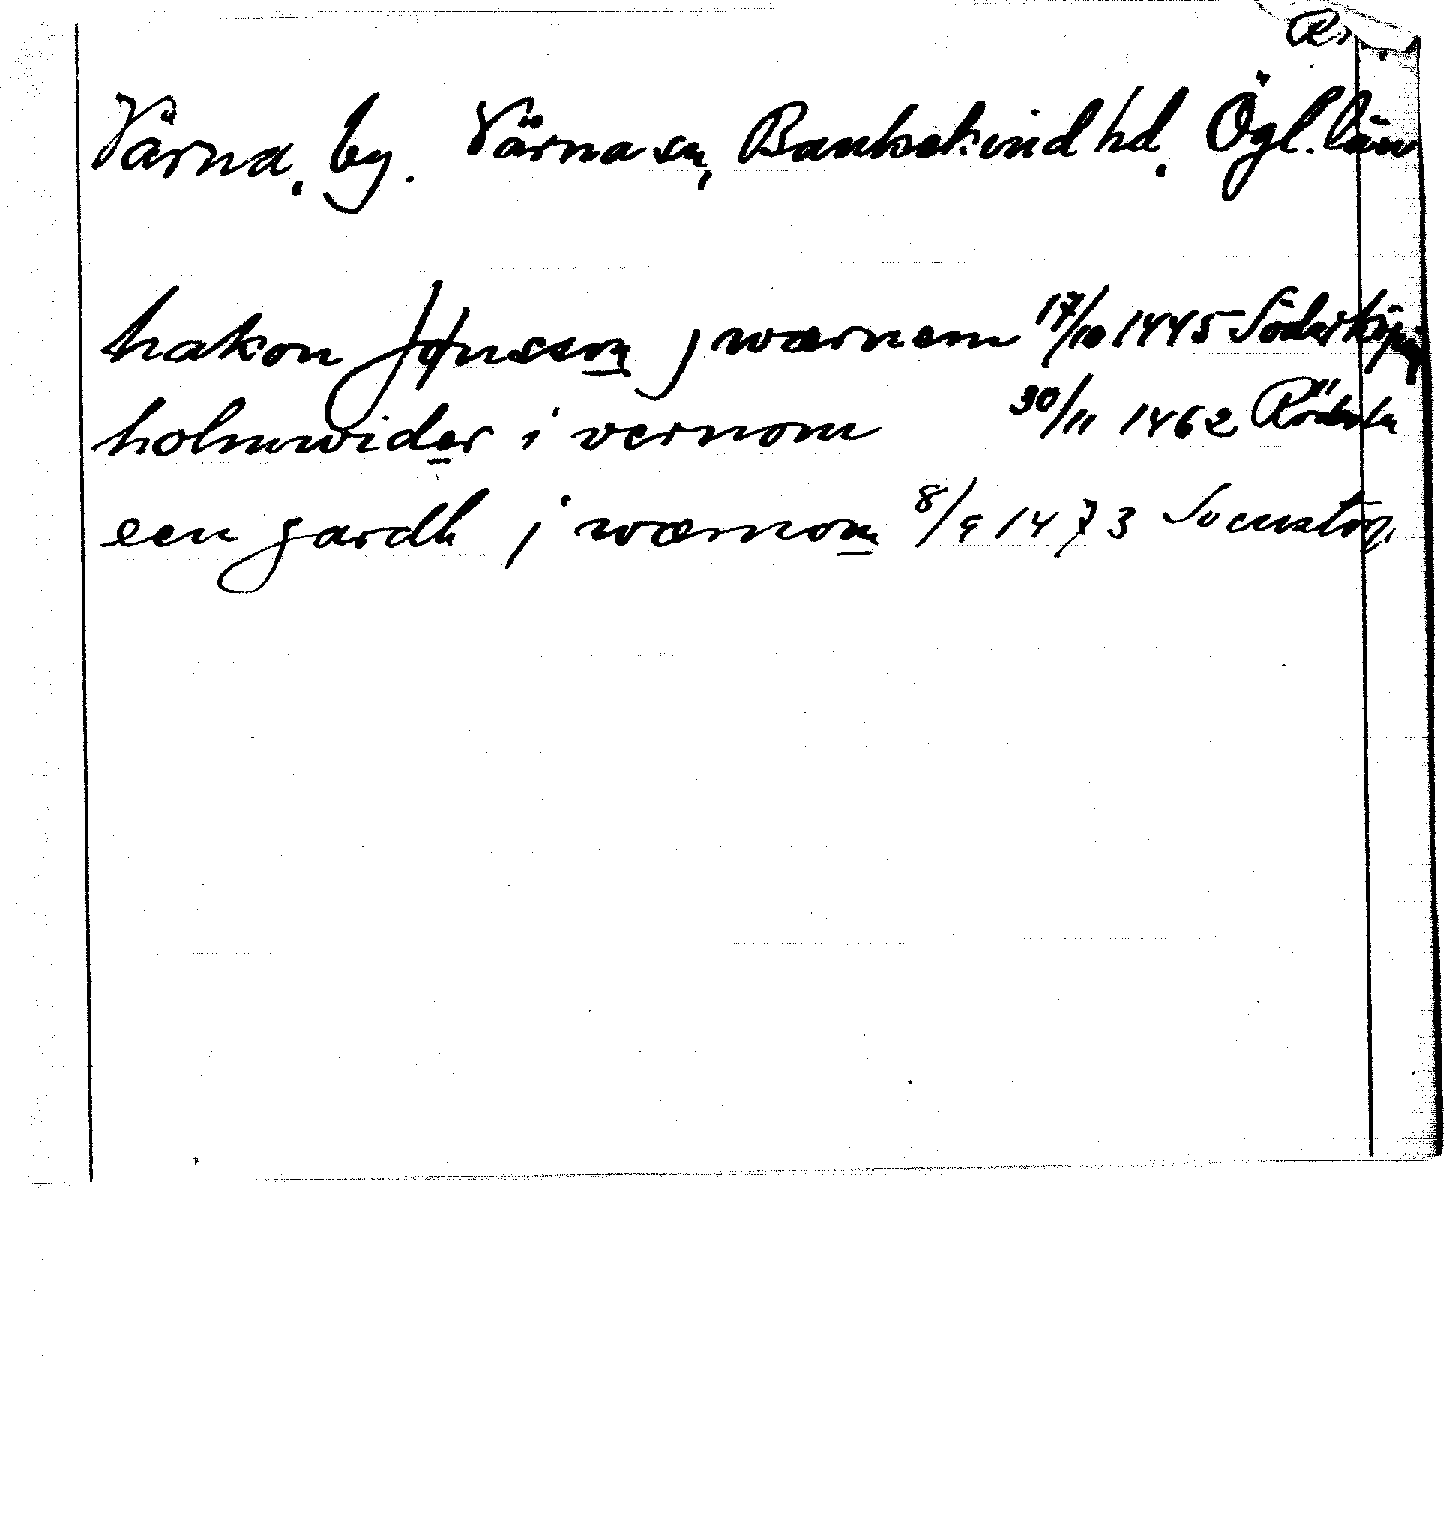 Värna. by. Värna sn, Bankekind hd. Ögl. län
hakon Jønsson j wærnem 17/10 1445 Söderköping
holmwider i vernom 30/11 1462
een gardh j wærnom 8/9 1473